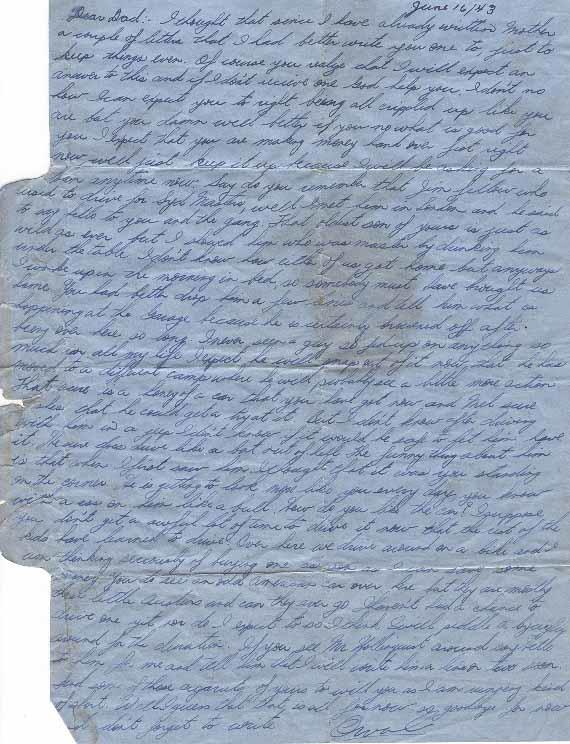 June 16/43
Dear Dad:- I thought that since I have already written Mother
a couple of letters that I had better write you one to just to
keep things even. Of course you realize that I will expect an
answer to this and if I don't receive one God help you. I don't no
how I can expect you to right being all crippled up like you
are but you damn well better if you no what is good for
you. I expect that you are making money hand over fist right
now well just keep it up because I will be asking for a
loan anytime now. Say do you remember that Jim fellow who
used to drive for Syd Masters, well I met him in London and he said
to say hello to you and the gang. That oldest son of yours is just as
wild as ever but I showed him who was master by drinking him
under the table. I don't know how either of us got home but anyways
I woke up in the morning in bed, so somebody must have brought us
home. You had better drop him a few lines and tell him what is
happening at the Garage because he is certainly browned off after
being over here so long. I never seen a guy so fed up on anything so
much in all my life. I expect he will snap out of it now that he has
moved to a different camp where he will probably see a little more action
That sure is a honey of a car that you have got now and Mel sure
wishes that he could get a try at it. But I don't know after driving
with him in a jeep I don't know if it would be safe to let him have
it. He sure does drive like a bat out of hell. The funny thing about him
is that when I first saw him I thought it was you standing
on the corner. He is getting to look more like you every day you know
with a on him like a bull. How do you like the car? I suppose
you don't get a awful lot of time to drive it now that the rest of the
kids have learned to drive. Over here we drive around on a bike and I
am thinking seriously of buying one as soon as I can save some
money. You do see an odd American car over here but they are mostly
these little Austins and can they ever go. I haven't had a chance to
drive one yet nor do I expect to so I think I will peddle a bycycle
around for the duration. If you see Mr around say hello
to him for me and tell him that I will write him a line or two soon.
Send some of those of yours to will you as I am running kind
of short. Well I guess that that is all for now so goodbye for now
and don't forget to write